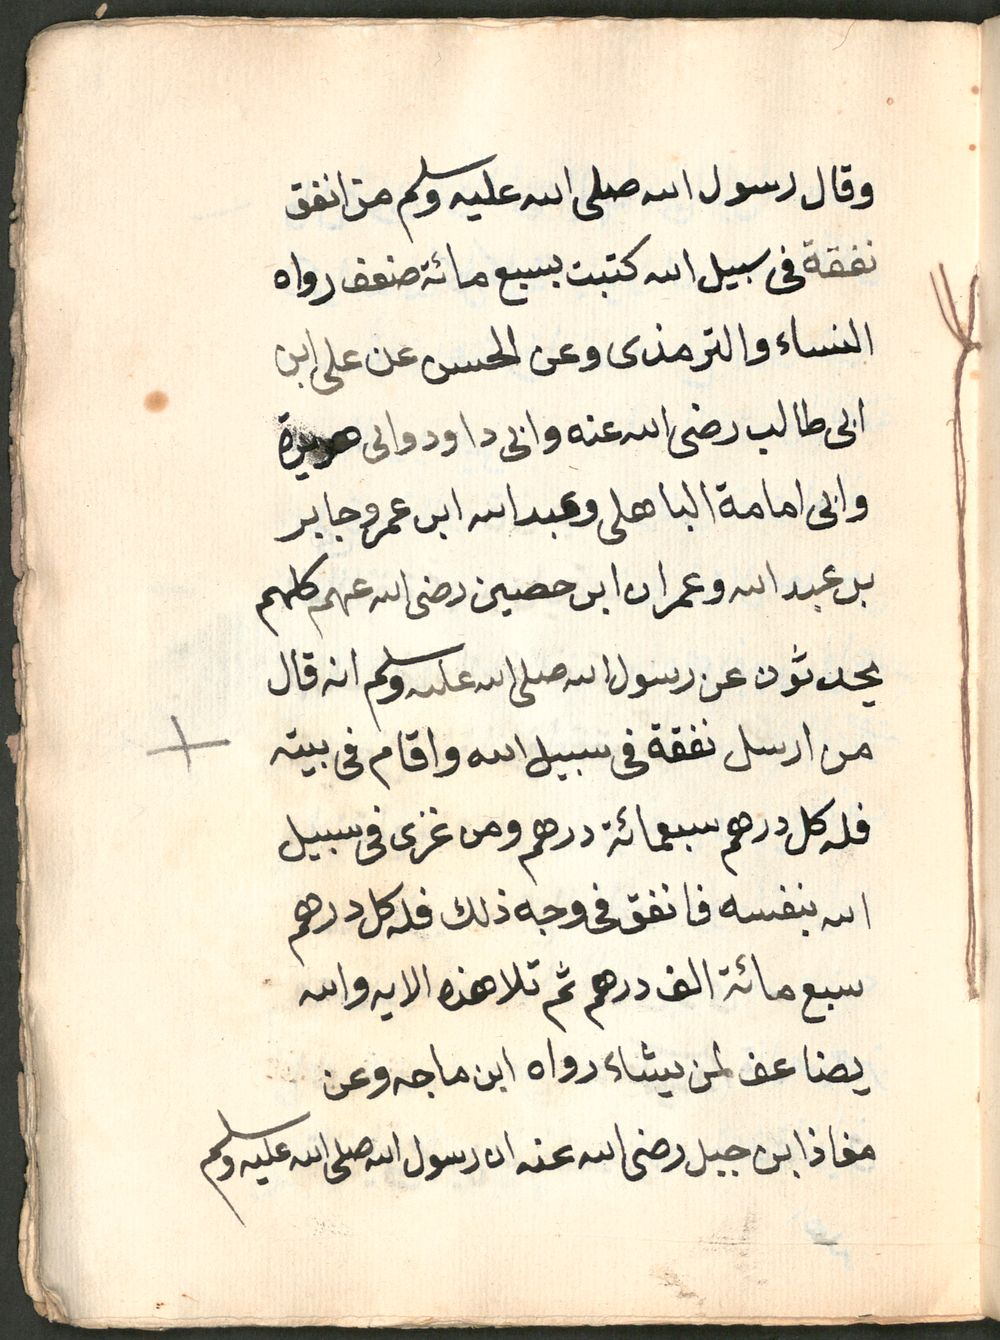 وقال رسول الله صلى الله عليه وسلم من انفق
نفقة فى سبيل الله كتبت بسبع مائة ضعف رواه
النساء والترمذى وعن الحسن عن على ابن
ابى طالب رضى الله عنه وابى داود وابى هريرة
وابى امامة الباهلى وعبد الله ابن عمر وجابر
بن عبد الله وعمران ابن حصين رضى الله عنهم كلهم
يحدثون عن رسول الله صلى الله عليه وسلم انه قال
من ارسل نفقة فى سبيل الله واقام فى بيته
فله كل درهم سبعمائة درهم ومن غزى فى سبيل
الله بنفسه فانفق فى وجه ذلك فله كل درهم
سبع مائة الف درهم ثم تلا هذه الايه والله
يضاعف لمن يشاء رواه ابن ماجه وعن
معاذ ابن جبل رضى الله عنه ان رسول الله صلى الله عليه وسلم